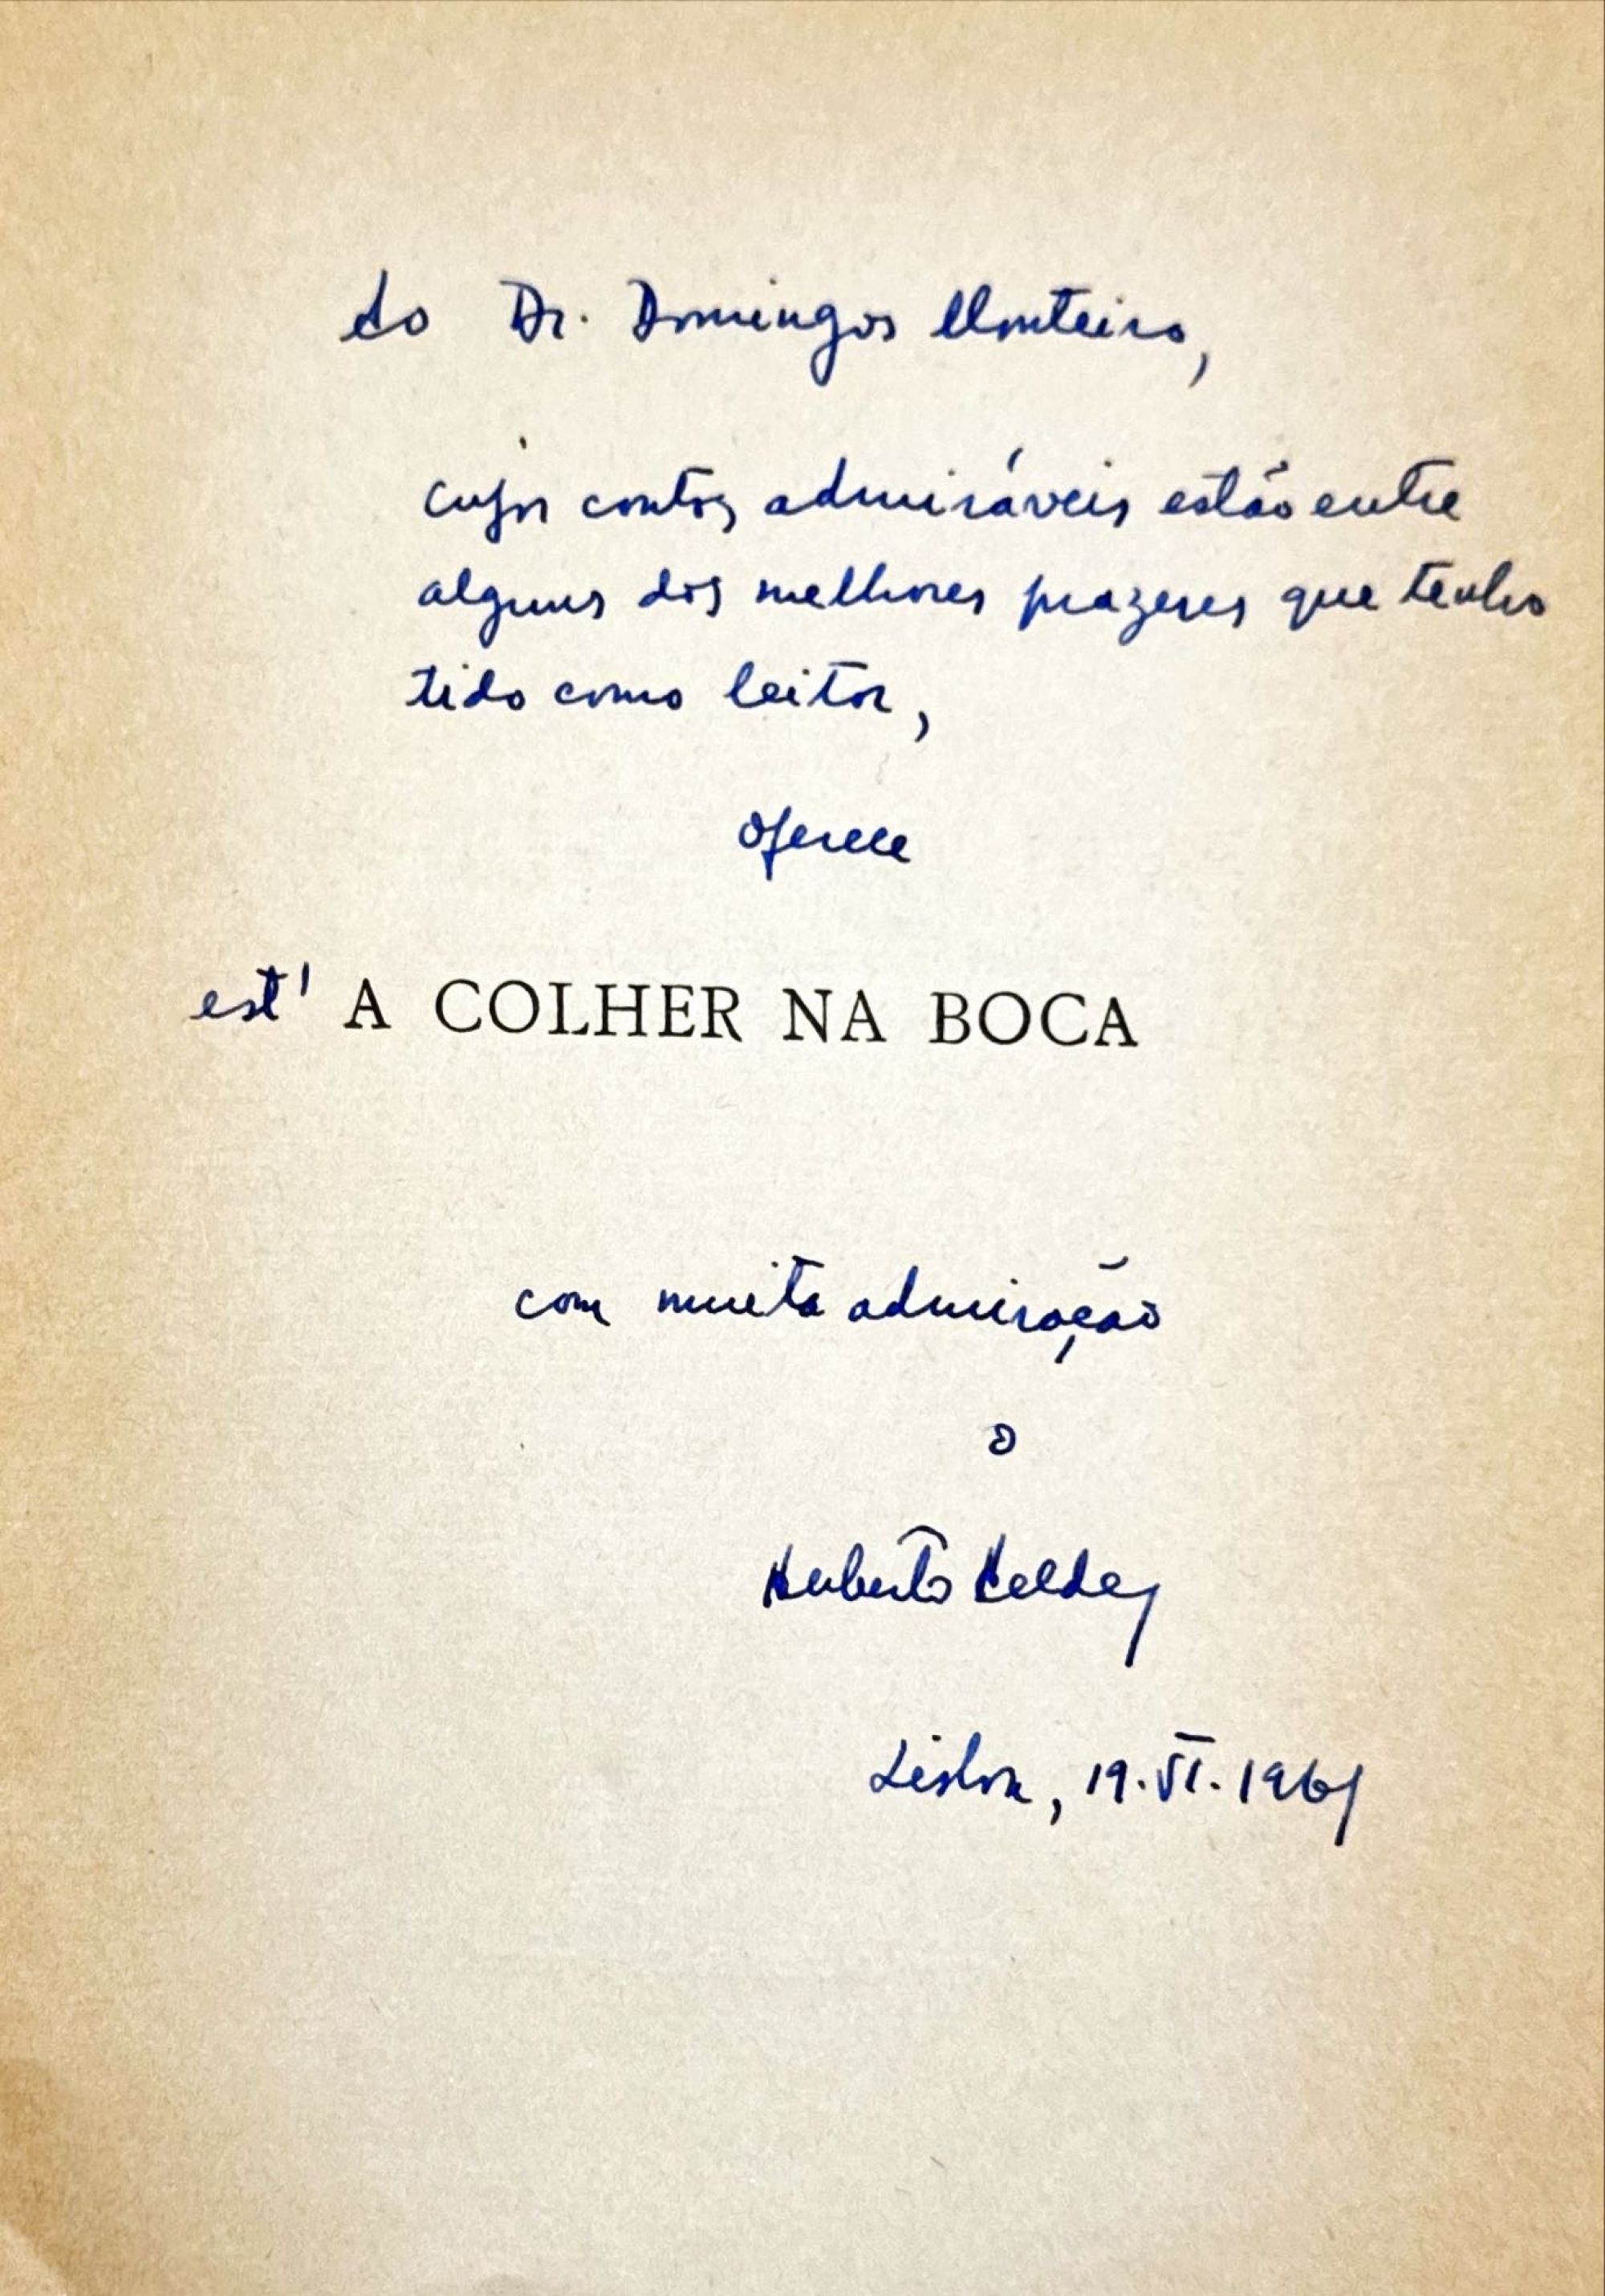 Ao Dr. Domingos Monteiro,
cujos contos admiráveis estão entre
alguns dos melhores prazeres que tenho
tido como leitor,
oferece
est' A COLHER NA BOCA
com muita admiração
o
Herberto Helder
Lisboa, 19.VI.1961